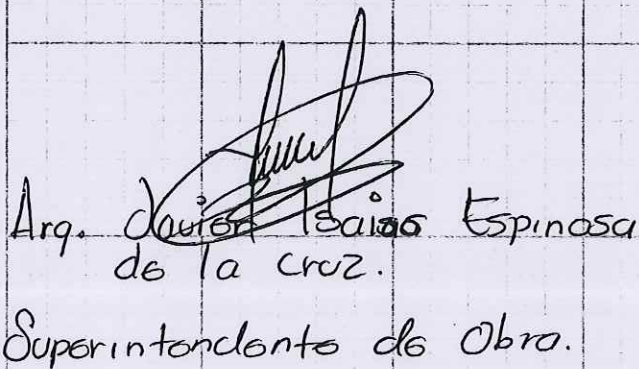 Arq. Javier Isaias Espinosa
de la Cruz.
Superintendente de Obra.